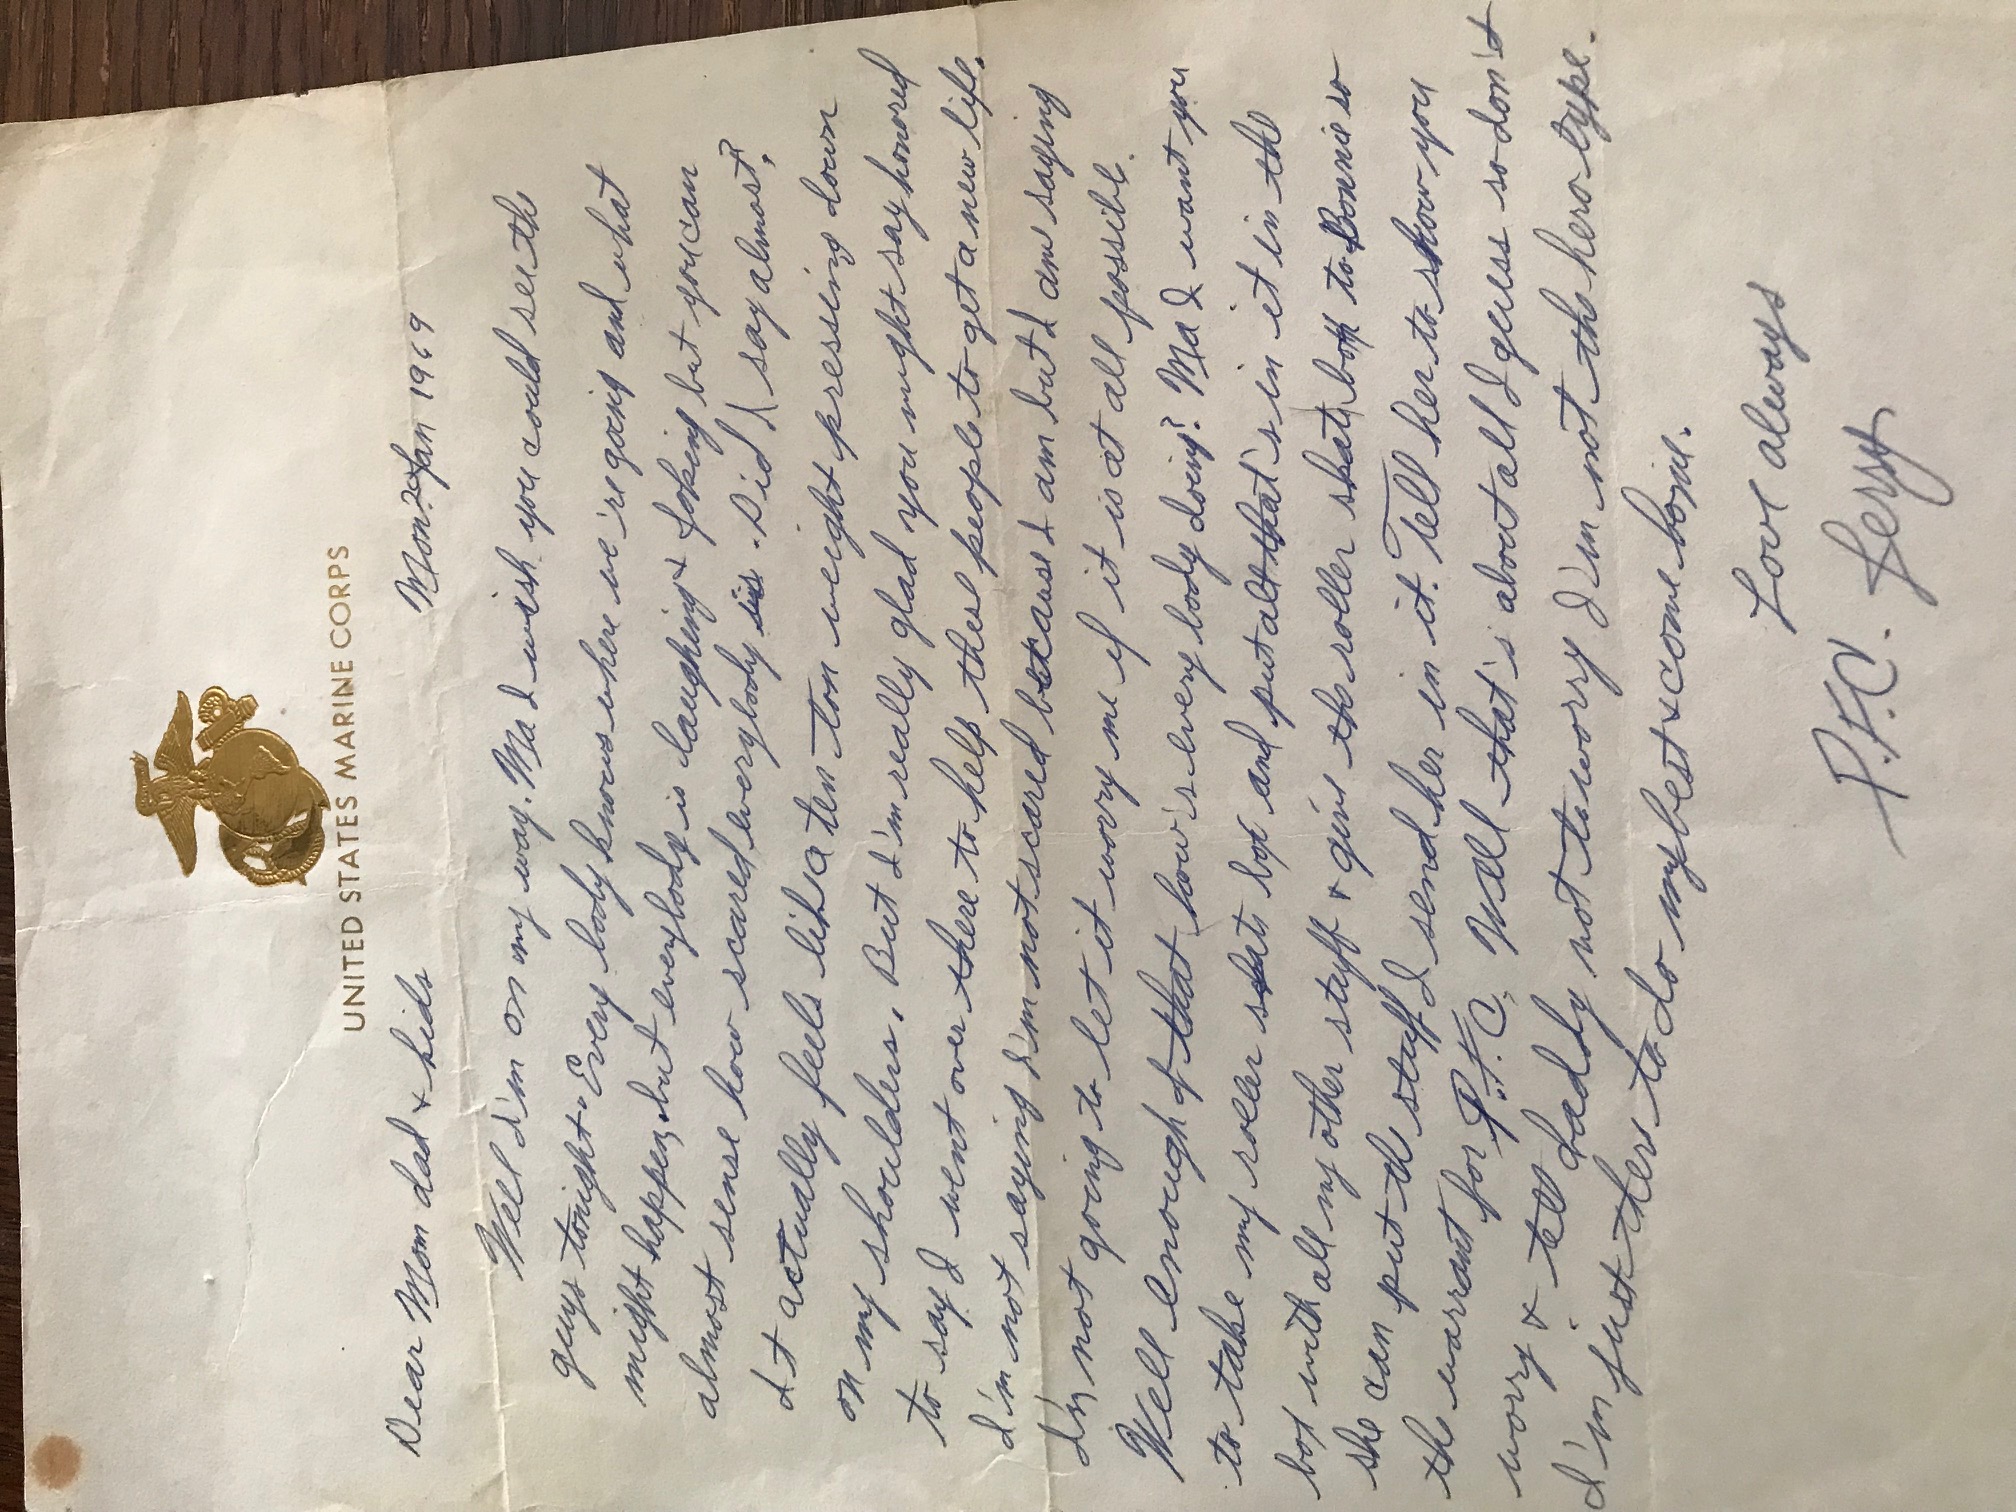 UNITED STATES MARINE CORPS
Dear Mom dad & kids
Mon. 20 Jan 1969
Well I'm on my way. Ma I wish you could see the
guys tonight. Every body knows where we're going and what
might happen, but everybody is laughing & joking but you can
almost sense how scared everybody is. Did I say almost?
It actually feels like a ten ton weight pressing down
on my shoulders. But I'm really glad you might say honored
to say I went over there to help these people to get a new life.
I'm not saying I'm not scared because I am but I am saying
I'm not going to let it worry me if it is at all possible.
Well enough of that how's every body doing? Ma I want you
to take my roller skate box and put all that's in it in the
box with all my other stuff & give the roller skate box to Bonnie so
she can put the stuff I send her in it. Tell her to show you
the warrant for P.F.C. Well that's about all I guess so don't
worry & tell daddy not to worry I'm not the hero type.
I'm just there to do my best & come home.
Love always
P.F.C. Jerry